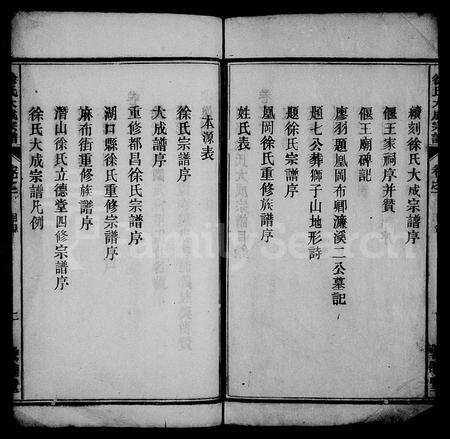 續刻徐氏大成宗譜序
偃王家祠序并贊
偃王廟碑記
廖羽題鳳岡布卿濂溪二公墓記
題七公葬獅子山地形詩
題徐氏宗譜序
鳳岡徐氏重修宗譜序
姓氏表
本源表
徐氏宗譜序
大成譜序
重修都昌徐氏宗譜序
湖口縣徐氏重修宗譜序
麻布街重修族譜序
潛山徐氏立德堂四修宗譜序
徐氏大成宗譜凡例
FamilySearch